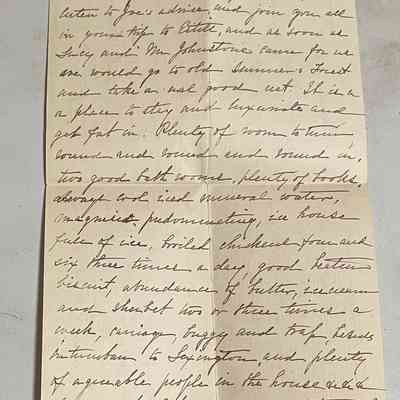 listen to Joe's advice, and join you all
in your trip to Estill, and as soon as
Lucy and Mr Johnstone came for us
we would go to old Sumner's Forest
and take a real good rest. It is a
a place to stay and luxuriate and
get fat in. Plenty of room to turn
round and round and round in,
two good bath rooms, plenty of books,
always cool iced mineral water,
magnesia predominating, ice house
full of ice, broiled chickens four and
six three times a day, good beaten
biscuit, abundance of butter, icecream
and sherbet two or three times a
week, carriage, buggy and trap, besides
interurban to Lexington and plenty
of agreeable people in the house